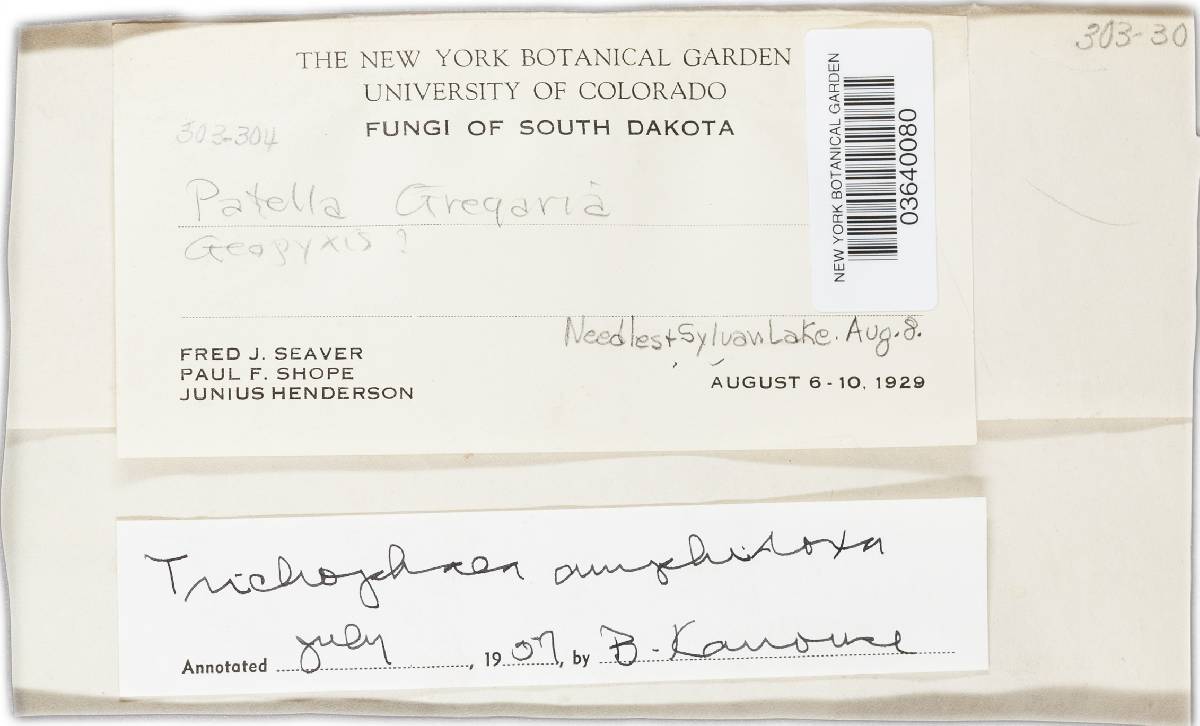 303-30
THE NEW YORK BOTANICAL GARDEN
UNIVERSITY OF COLORADO
303-304
FUNGI OF SOUTH DAKOTA
Patella Gregaria
Geopyxis ?
Needles + Sylvan Lake. Aug. 8.
FRED J. SEAVER
PAUL F. SHOPE
JUNIUS HENDERSON
AUGUST 6-10, 1929
NEW YORK BOTANICAL GARDEN
03640080
Trichophaea amphidoxa
Annotated July, 1957, by B. Kanouse